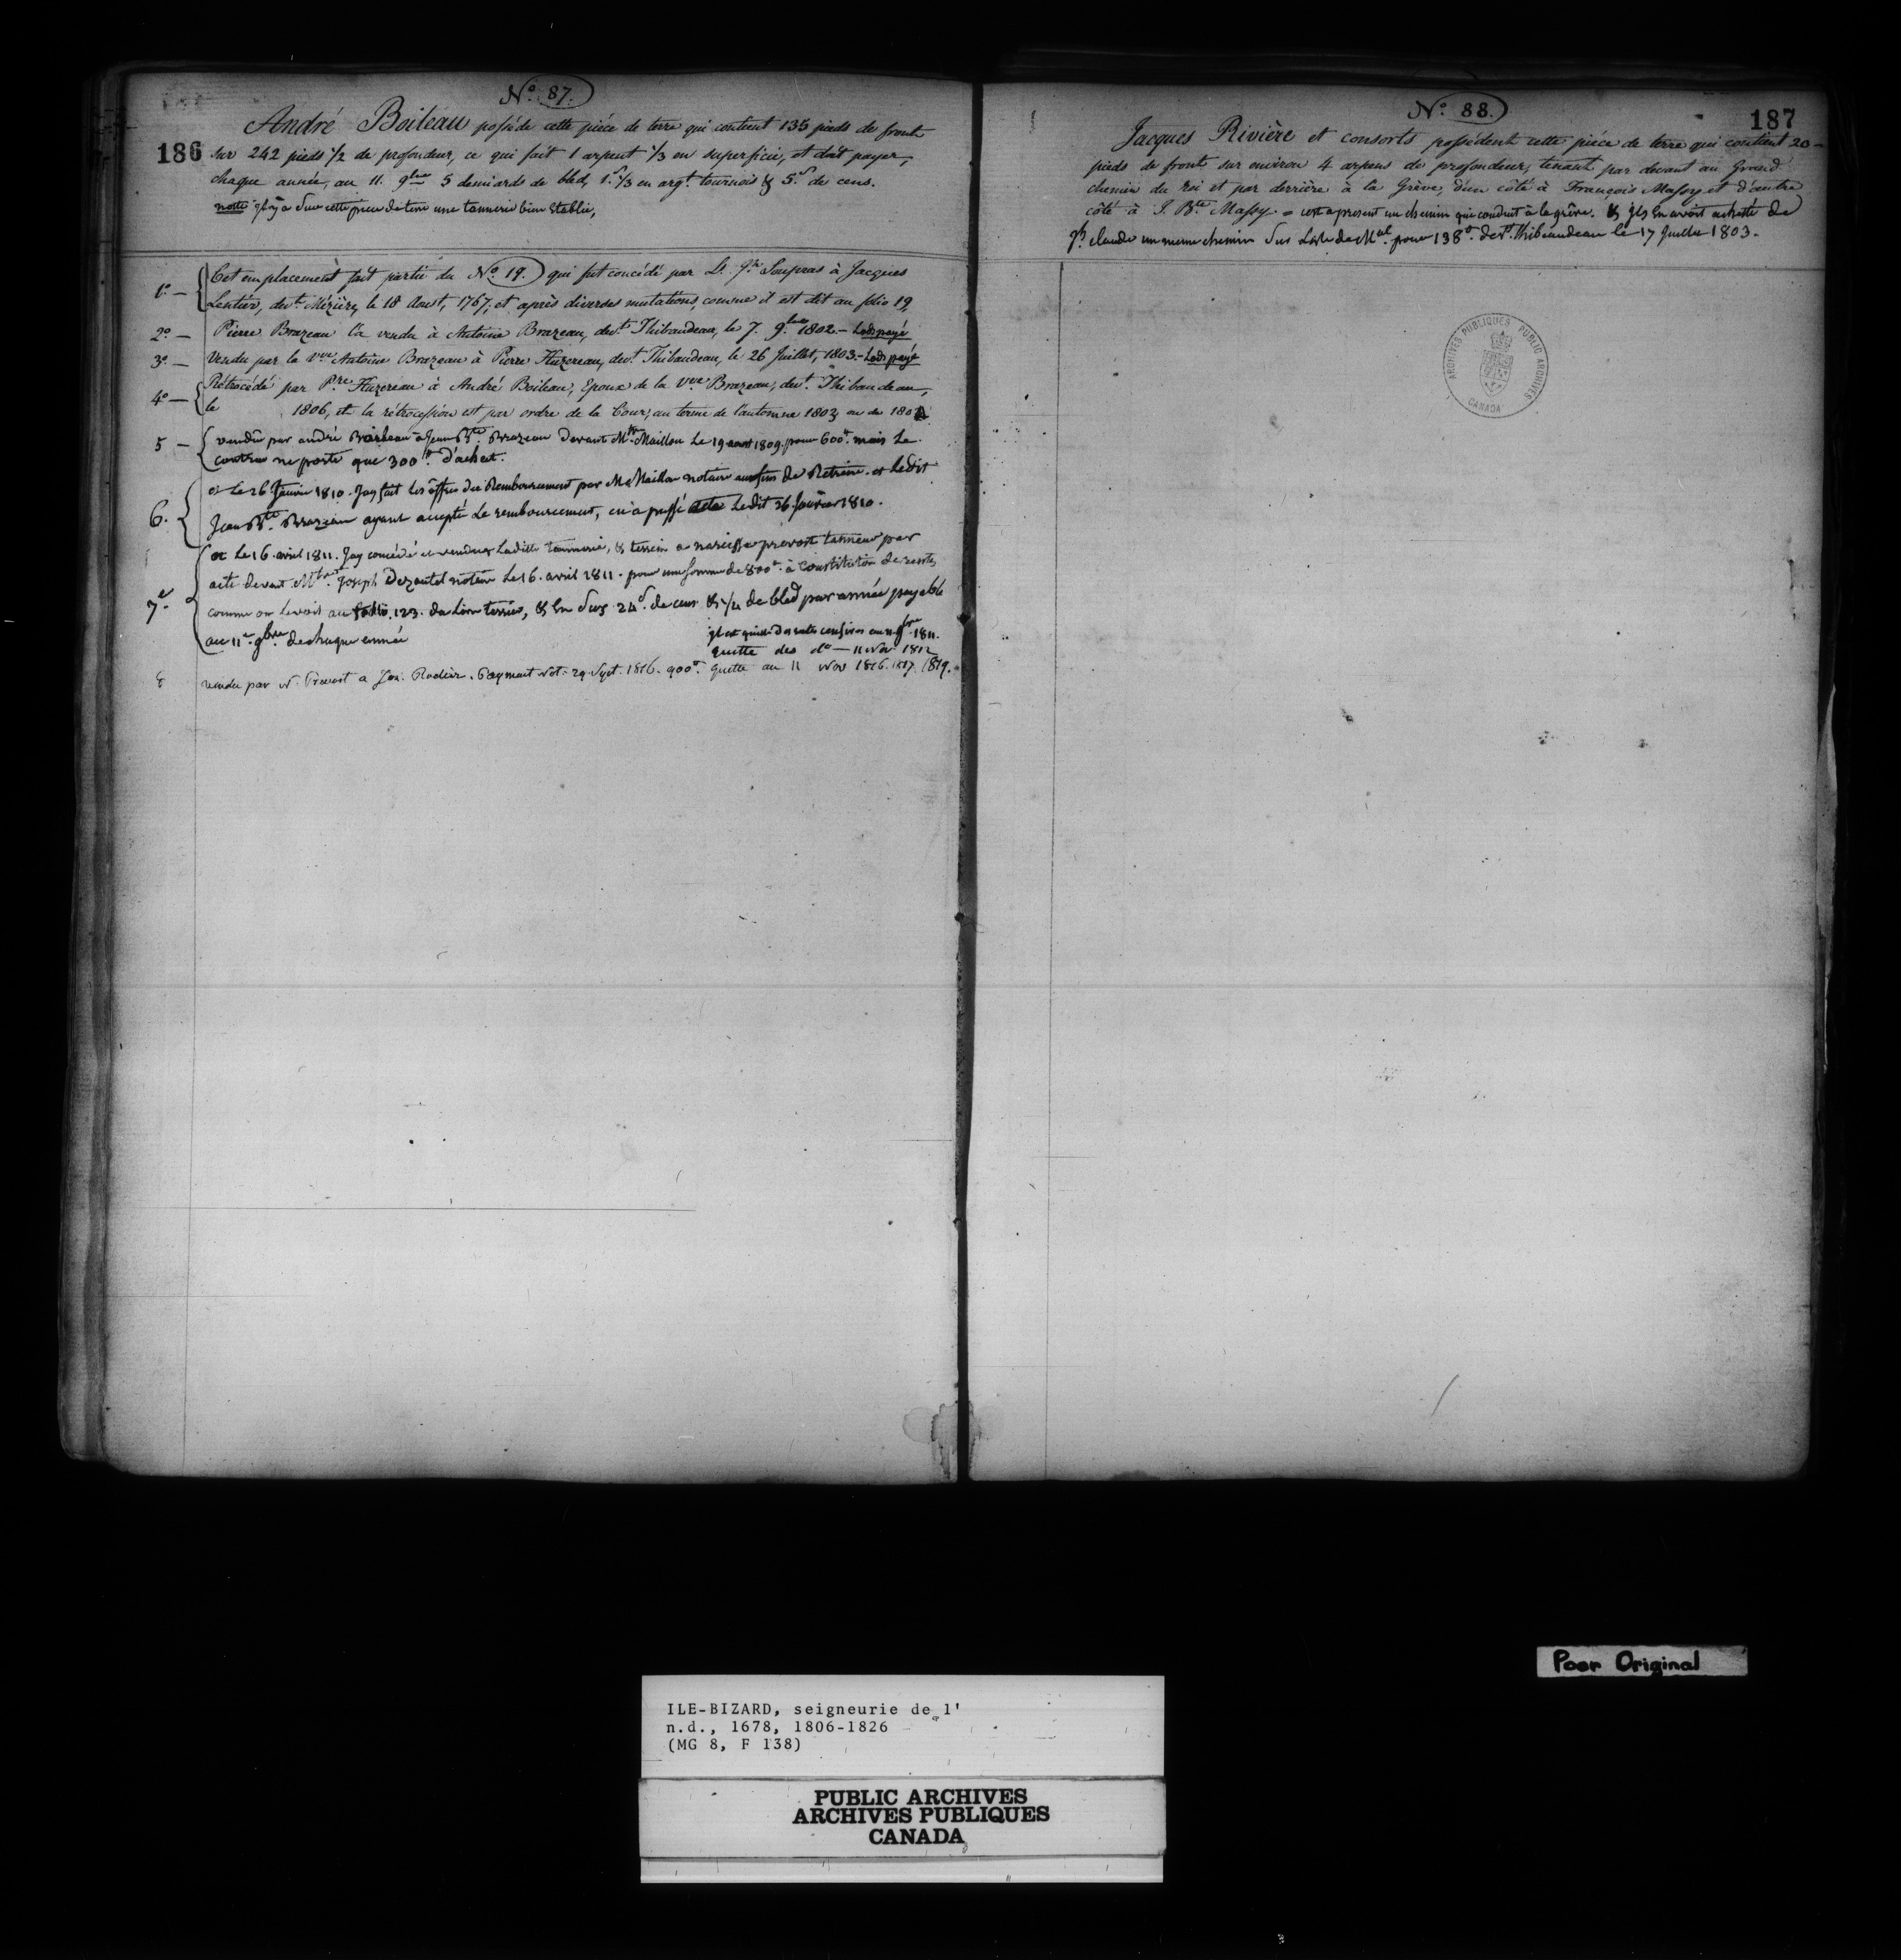 No. 87.
186
André Boileau possède cette pièce de terre qui contient 135 pieds de front
sur 242 pieds 1/2 de profondeur, ce qui fait 1 arpent 1/3 en superficie, et doit payer,
chaque année, au 11. 9bre 5 demiards de bled, 1.s 1/3 en argt. tournois & 5.s de cens.
notte jl y a sur cette piece de terre une tannerie bien Etablie,
1o. — Cet emplacement fait partie du No. 19. qui fut concédé par Soupras à Jacques
Lentier, devt. Mézière, le 18 Aoust, 1767, et après diverses mutations comme il est dit au folio 19,
2o. — Pierre Brazeau l'a vendu à Antoine Brazeau, devt. Thibaudeau, le 7. 9bre 1802. — Lods payé
3o. — Vendu par la vve Antoine Brazeau à Pierre Huzereau, devt. Thibaudeau, le 26 Juillet, 1803. — Lods payé
4o — Rétrocédé par Pre. Huzereau à André Boileau, Epoux de la Vve Brazeau, devt. Thibaudeau,
le 1806, et la rétrocession est par ordre de la Cour, au terme de l'automne 1803 ou de 180
5 — vendu par andré Boileau a Jean Bte. Brazeau devant Mtre Maillou Le 19 aout 1809. pour 600# mais Le
contrat ne porte que 300# d'achat.
6. et Le 26 Janvier 1810. Jay fait Les offres du Remboursement par Me Maillou notaire aux fins de Retraire. et Ledit
Jean Bte Brazeau ayant accepté Le remboursement, en a passé acte Ledit 26 Janvier 1810.
7e. et Le 16. avril 1811. Jay concédé et vendue Ladite Tannerie, & terrein a narcisse prevost tanneur par
acte devant Mtre. Joseph Dezautel notaire Le 16. avril 1811. pour une somme de 800# à Constitution de rente
comme on Le voit au folio. 123. du Livre terrier, & En sus 24s. de cens & 1/4 de bled par année payable
au 11e. 9bre. de chaque année
jl est quitte des rentes censives au 11 9bre 1811.
quitte des do — 11 Nov 1812
8 vendu par N. Prevost a Rodier. Paymant Not. 29. Sept. 1816. 900# quitte au 11 Nov 1816. 1817. 1819.
No. 88.
187
Jacques Rivière et consorts possèdent cette pièce de terre qui contient 20
pieds de front sur environ 4 arpens de profondeur, tenant par devant au Grand
chemin du Roi et par derrière à la Grève, d'un côté à François Massy et d'autre
côté à J. Bte. Massy = cest a present un chemin qui conduit à la grêve. & jls En avoit acheté de
claude un meme chemin pour 138#. devt. Thibaudeau le 17 Juillet 1803.
ARCHIVES PUBLIQUES PUBLIC ARCHIVES
CANADA
Poor Original
ILE-BIZARD, seigneurie de l'
n.d., 1678, 1806-1826
(MG 8, F 138)
PUBLIC ARCHIVES
ARCHIVES PUBLIQUES
CANADA